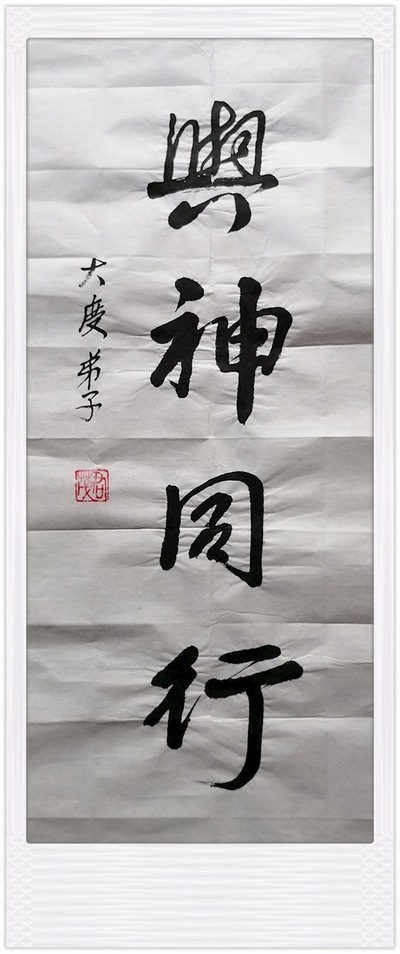 與神同行
大度弟子